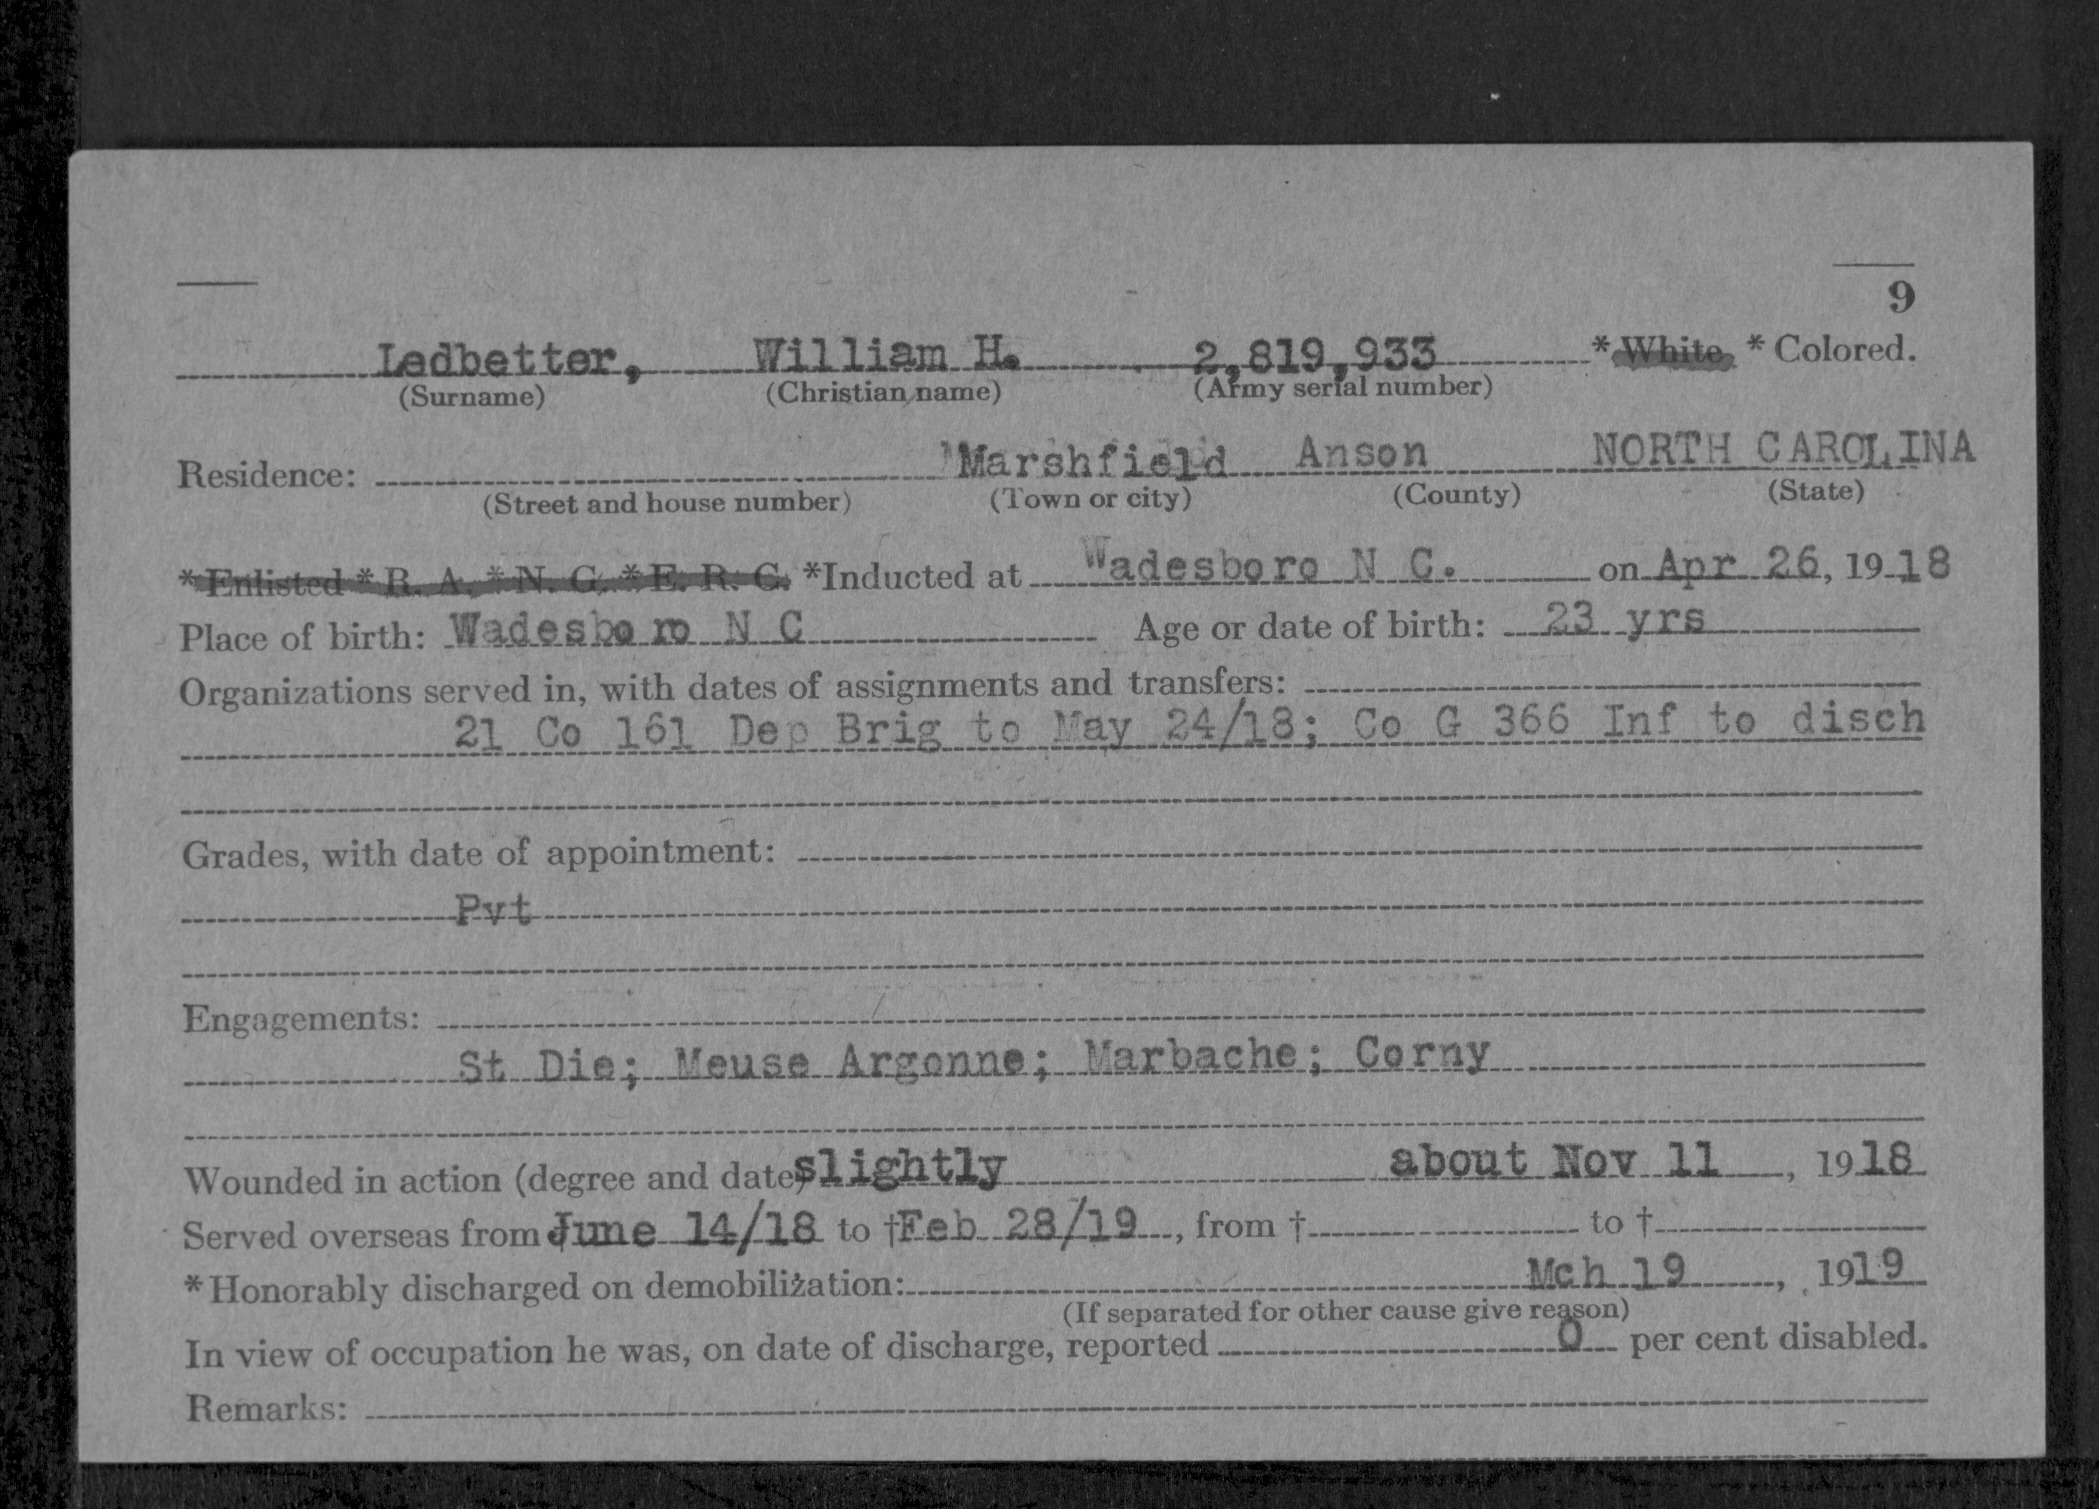 9
Ledbetter, William H. 2,819,933 * White * Colored.
(Surname) (Christian name) (Army serial number)
Residence: Marshfield Anson NORTH CAROLINA
(Street and house number) (Town or city) (County) (State)
*Enlisted * R. A. * N. G. * E. R. C. *Inducted at Wadesboro N C. on Apr 26, 1918
Place of birth: Wadesboro N C Age or date of birth: 23 yrs
Organizations served in, with dates of assignments and transfers:
21 Co 161 Dep Brig to May 24/18; Co G 366 Inf to disch
Grades, with date of appointment:
Pvt
Engagements:
St Die; Meuse Argonne; Marbache; Corny
Wounded in action (degree and date) slightly about Nov 11, 1918
Served overseas from † June 14/18 to † Feb 28/19, from † to †
*Honorably discharged on demobilization: Mch 19, 1919
(If separated for other cause give reason)
In view of occupation he was, on date of discharge, reported 0 per cent disabled.
Remarks: